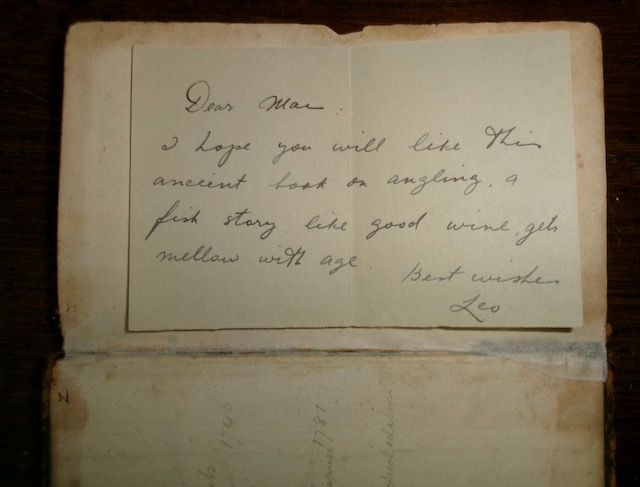 Dear Mac.
I hope you will like this
ancient book on angling, a
fish story, like good wine, gets
mellow with age.
Best wishes
Leo
1740
1781